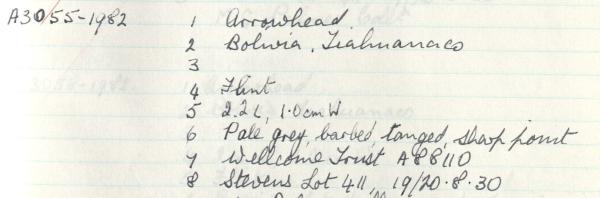 A3055-1982 1 Arrowhead
2 Bolivia, Tiahuanaco
3
4 Flint
5 2.2 L, 1.0cm W
6 Pale grey, barbed, tanged, sharp point
7 Wellcome Trust A88110
8 Stevens Lot 411, 19/20.8.30